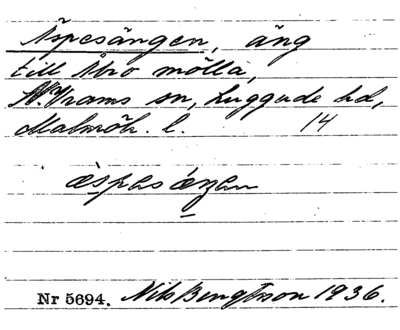 Äspesängen, äng
till Åbro mölla,
N. Vrams sn, Luggude hd,
Malmöh. l. 14
äspas ä́ŋan
Nr 5694. Nils Bengtsson 1936.